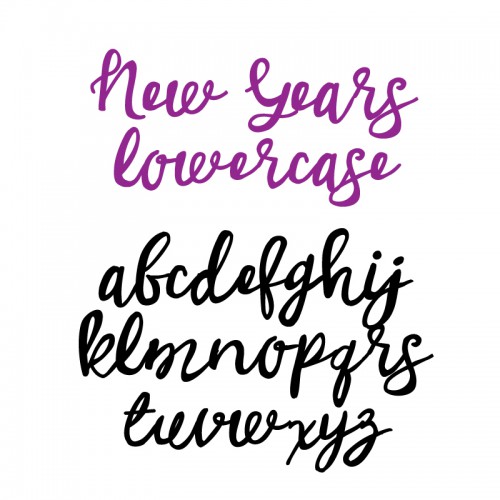 New Years
lowercase
abcdefghij
klmnopqrs
tuvwxyz